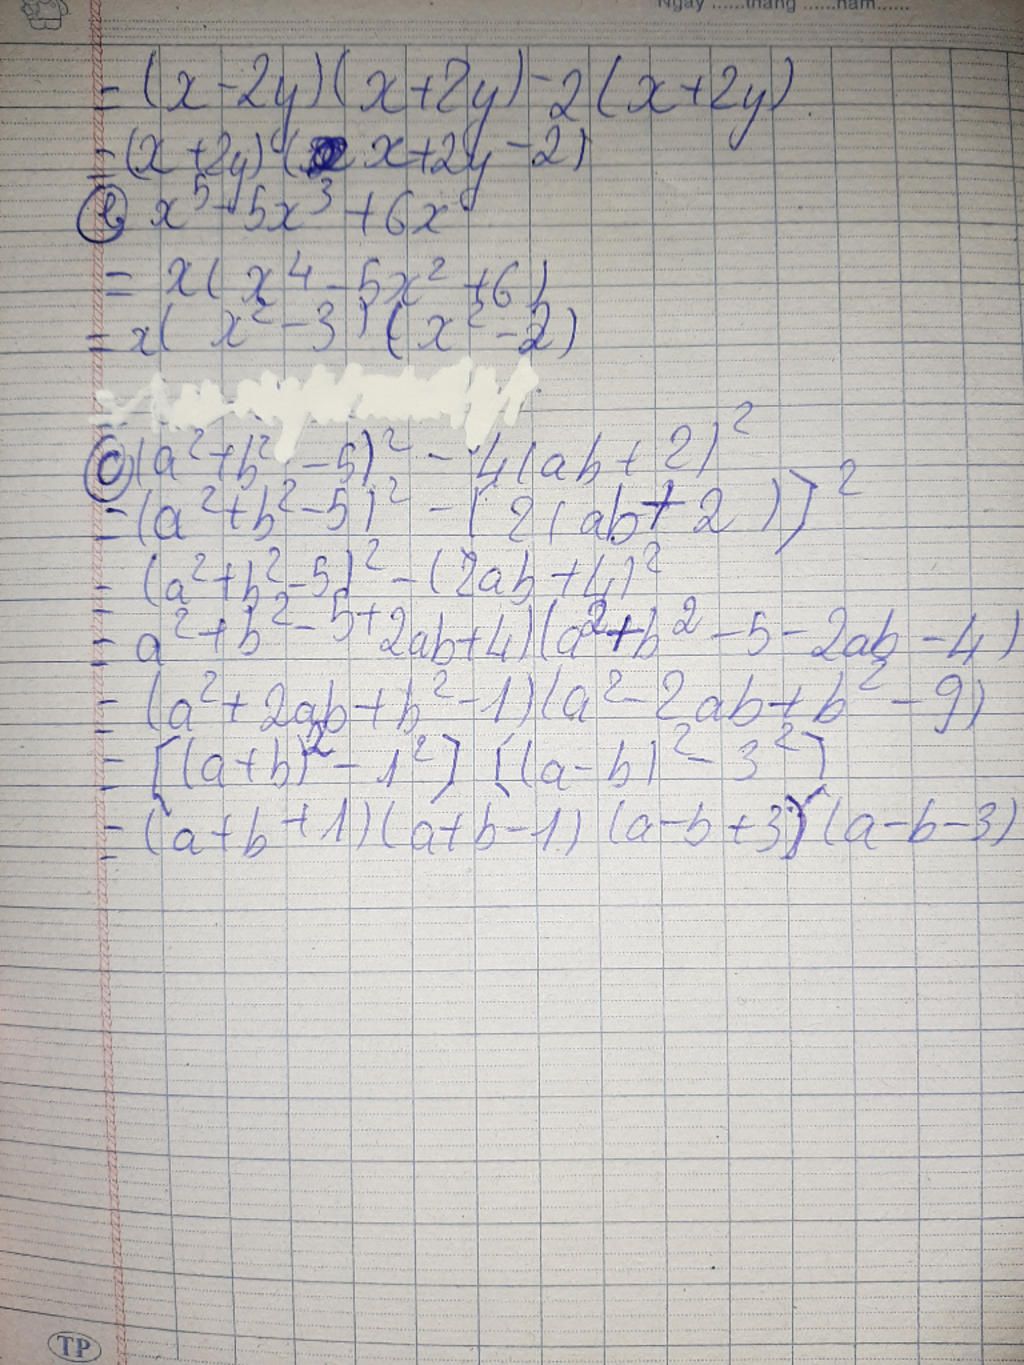 Ngày ......tháng ......năm......
= (x-2y)(x+2y)-2(x+2y)
= (x+2y)(x+2y-2)
e, x⁵-5x³+6x
= x(x⁴-5x²+6)
= x(x²-3)(x²-2)
c (a²+b²-5)²-4(ab+2)²
= (a²+b²-5)²-[2(ab+2)]²
= (a²+b²-5)²-(2ab+4)²
= a²+b²-5+2ab+4)(a²+b²-5-2ab-4)
= (a²+2ab+b²-1)(a²-2ab+b²-9)
= [(a+b)²-1²][(a-b)²-3²]
= (a+b+1)(a+b-1)(a-b+3)(a-b-3)
TP